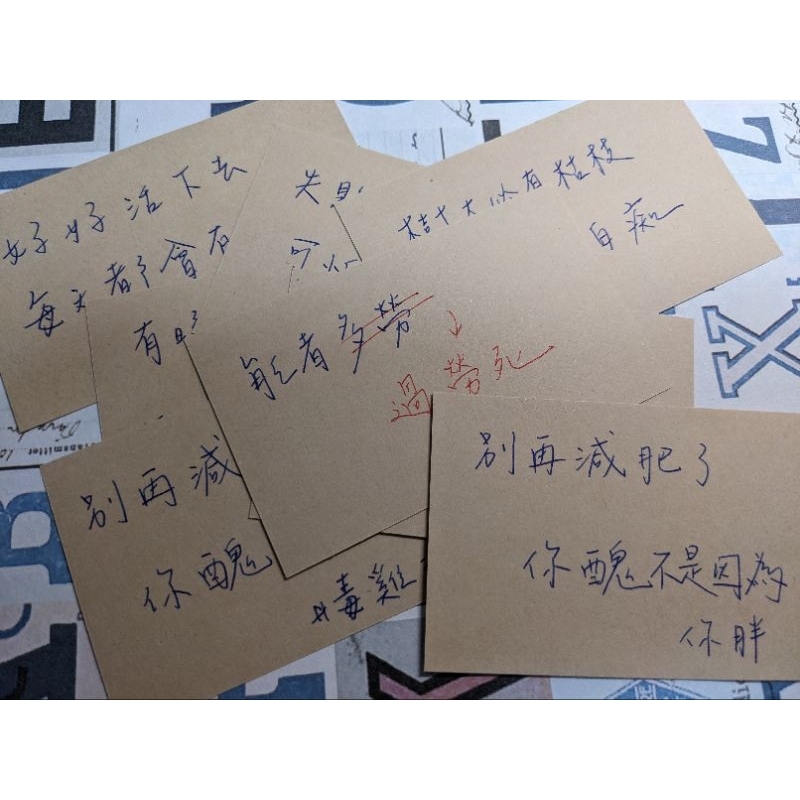 好好活下去
每天都會有
失
今
桔十大以有枯枝
白痴
有
能者多勞
↓
過勞死
別再減
你醜
#毒雞
別再減肥了
你醜不是因為
你胖